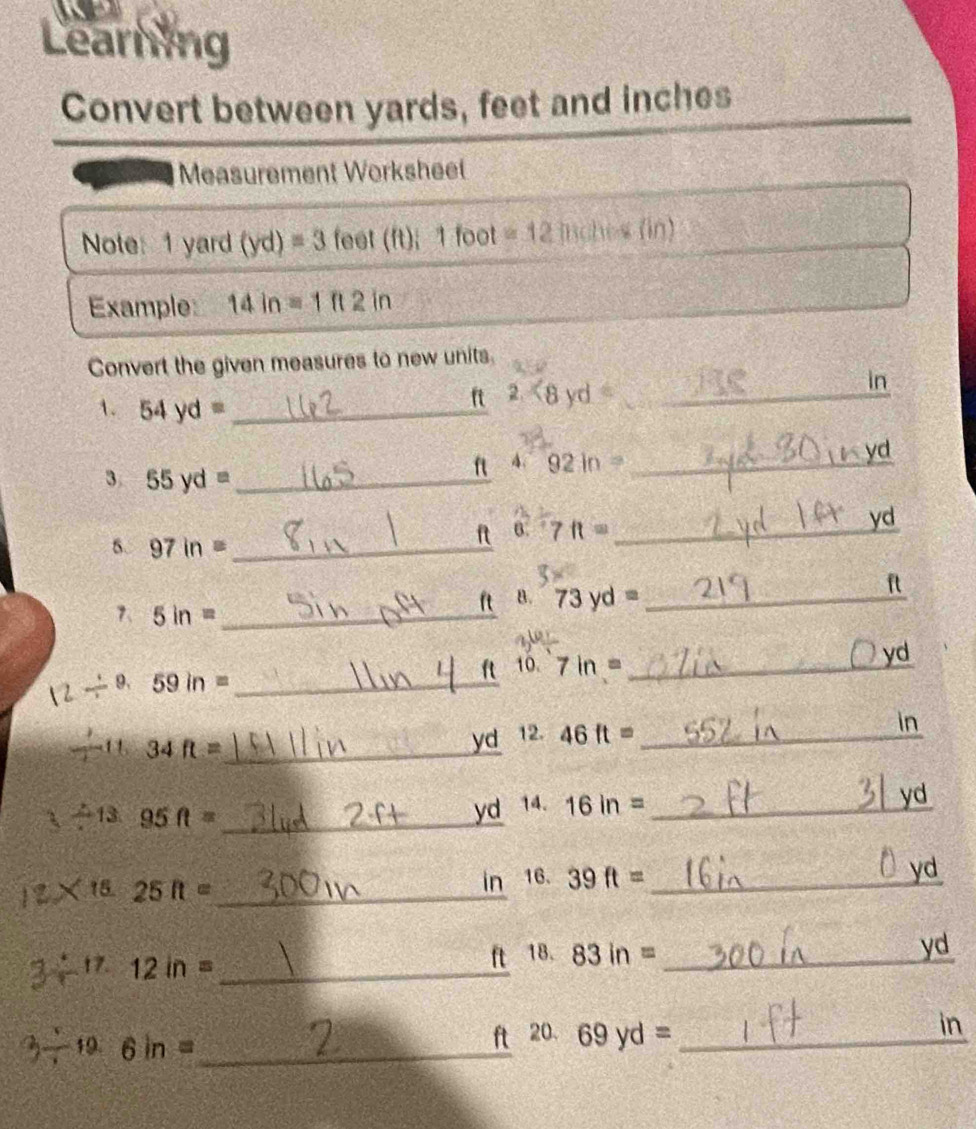 Learning
Convert between yards, feet and inches
Measurement Worksheet
Note: 1 yard (yd) = 3 feet (ft); 1 foot = 12 inches (in)
Example: 14 in = 1 ft 2 in
Convert the given measures to new units.
1. 54 yd = 162 ft 2. 8 yd = in
3. 55 yd = 165 ft 4. 92 in = 2yd 30 in yd
5. 97 in = 8in 1 ft 6. 7 ft = 2yd 1ft yd
7. 5 in = 5in 0ft ft 8. 3x 73 yd = 219 ft
12 ÷ 9. 59 in = 11in 4 ft 10. 7 in = 07in 0 yd
÷ 11. 34 ft = 11in yd 12. 46 ft = 552 in in
3 ÷ 13. 95 ft = 31yd 2ft yd 14. 16 in = 2 ft 31 yd
12 X 15. 25 ft = 300in in 16. 39 ft = 16in 0 yd
3 ÷ 17. 12 in = 1 ft 18. 83 in = 300 in yd
3 ÷ 19. 6 in = 2 ft 20. 69 yd = 1 ft in